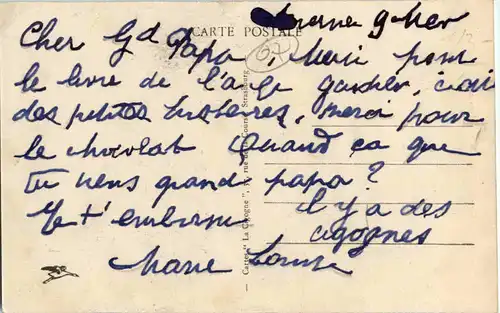 CARTE POSTALE
67
Cher Gd Papa, Merci pour
le livre de l'ange gardien, j'ai
des petites histoires, merci pour
le chocolat Quand ça que
Tu viens grand papa?
Je t'embrasse
il y a des
cigognes
Marie Louise
Cartes "La Cigogne", rue de la Course Strasbourg